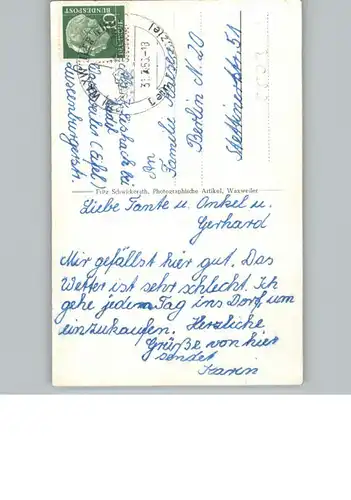 DEUTSCHE
BUNDESPOST
31.7.5
-18
An
Familie
Berlin N 20
Stettiner Str. 51
bei
Waxweiler (Eifel)
Luxemburgerstr.
Fritz Schwickerath, Photographische Artikel, Waxweiler
Liebe Tante u. Onkel u.
Gerhard
Mir gefällst hier gut. Das
Wetter ist sehr schlecht. Ich
gehe jedem Tag ins Dorf um
einzukaufen. Herzliche
Grüße von hier
sendet
Karin